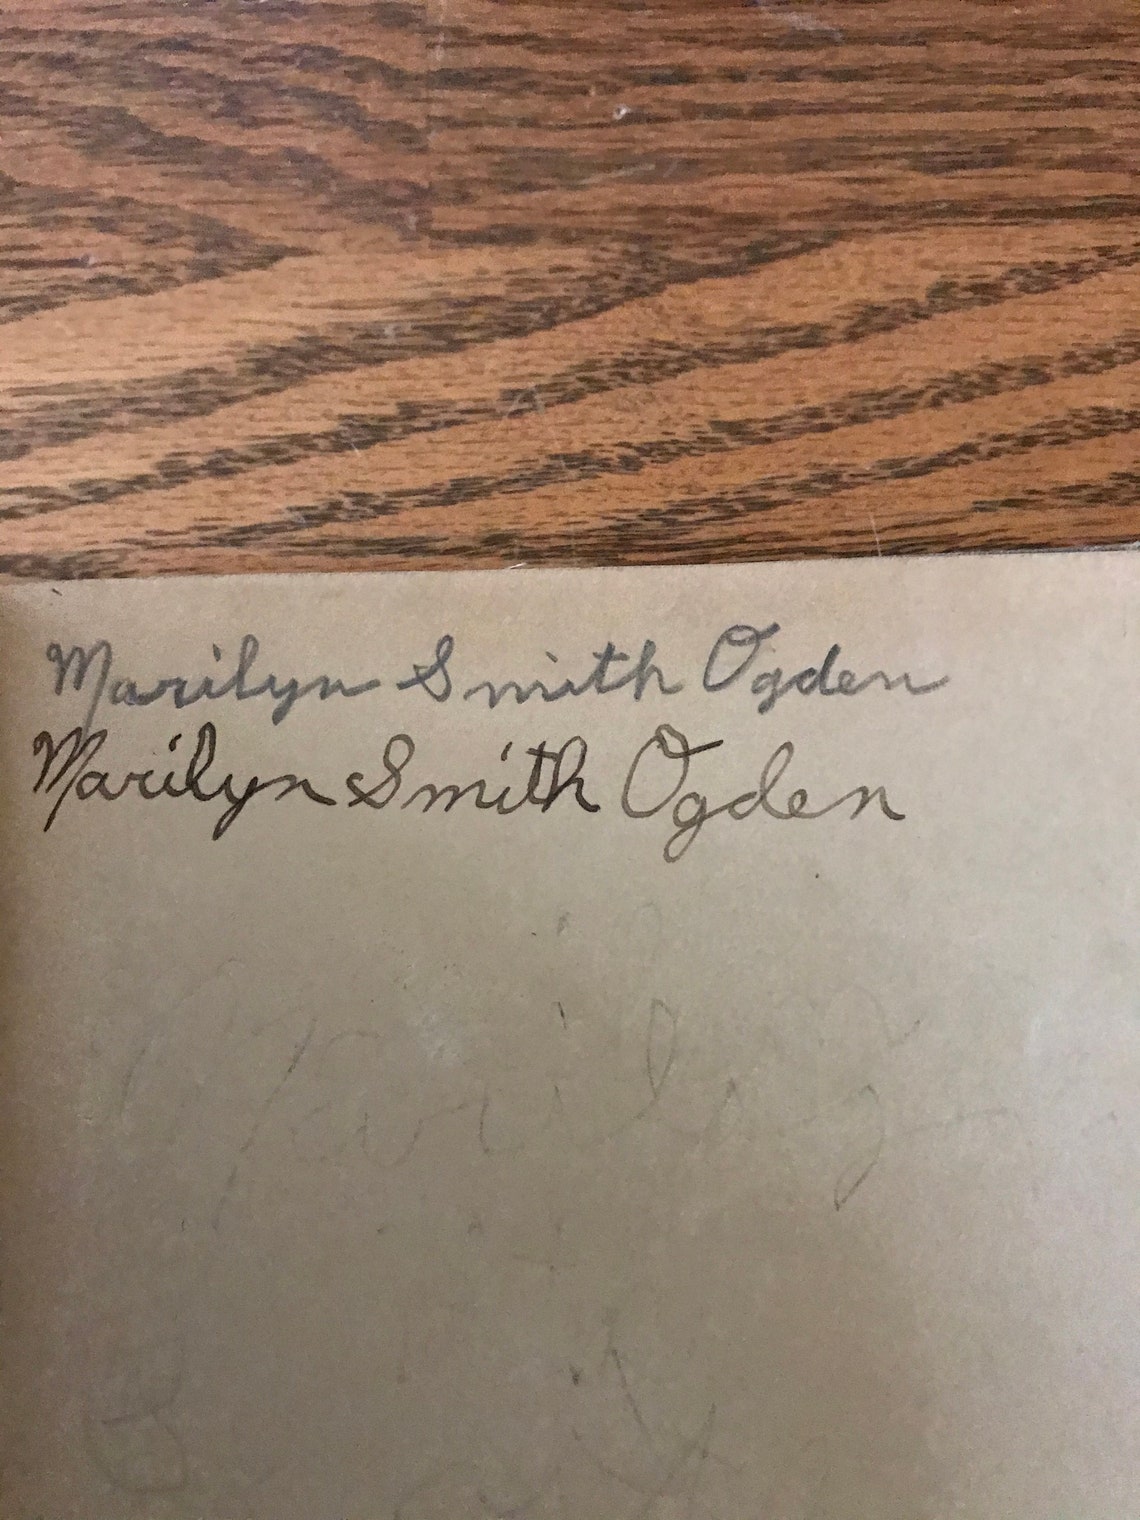 Marilyn Smith Ogden
Marilyn Smith Ogden
Marilyn